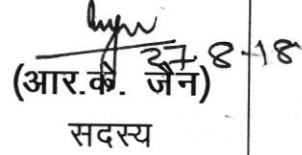 27-8-18
(आर.के. जैन)
सदस्य